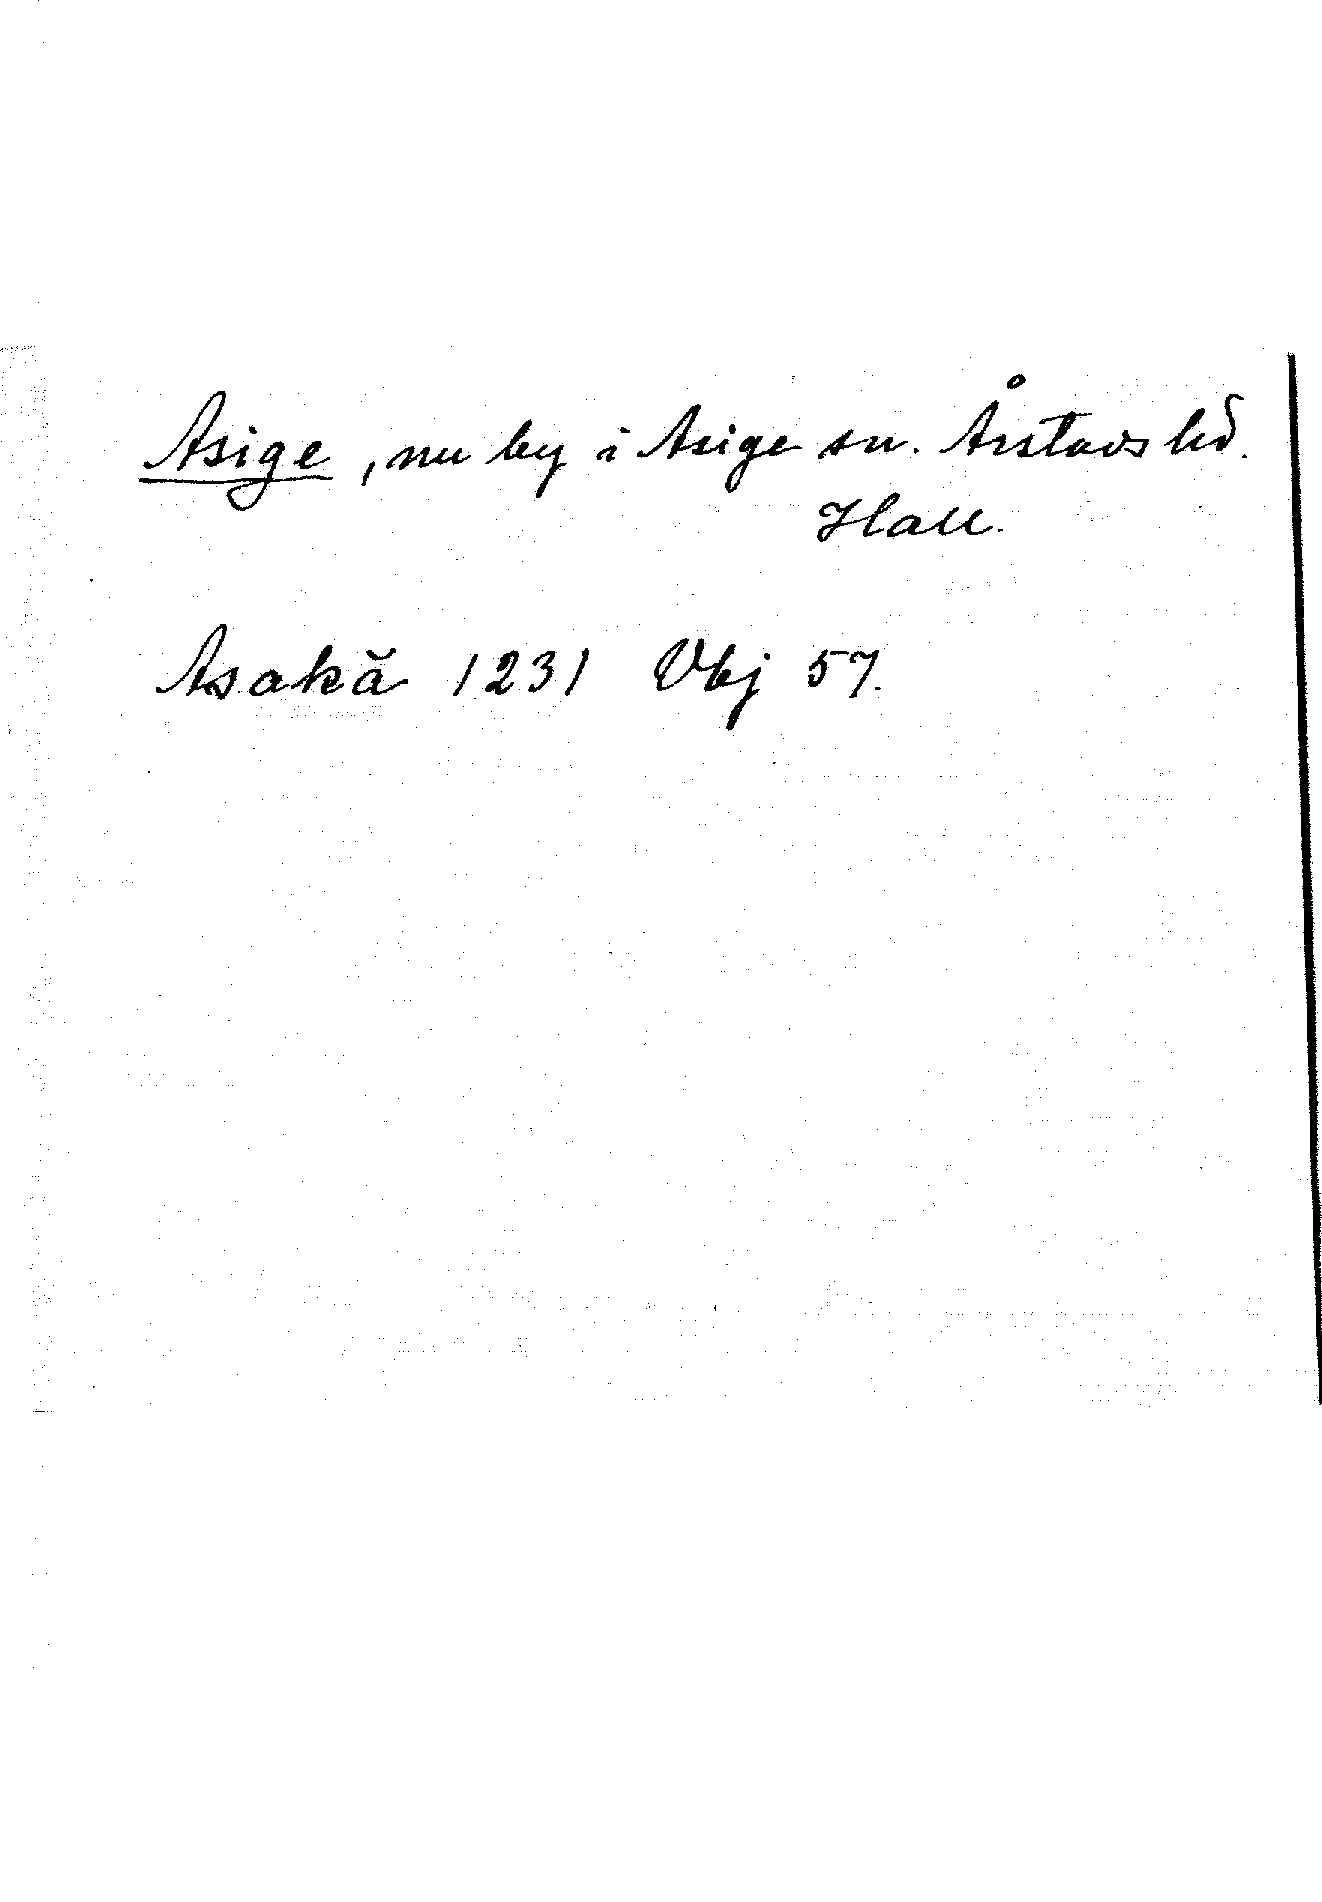 Asige, nu by i Asige sn. Årstads hd.
Hall.
Asakă 1231 Vbj 57.